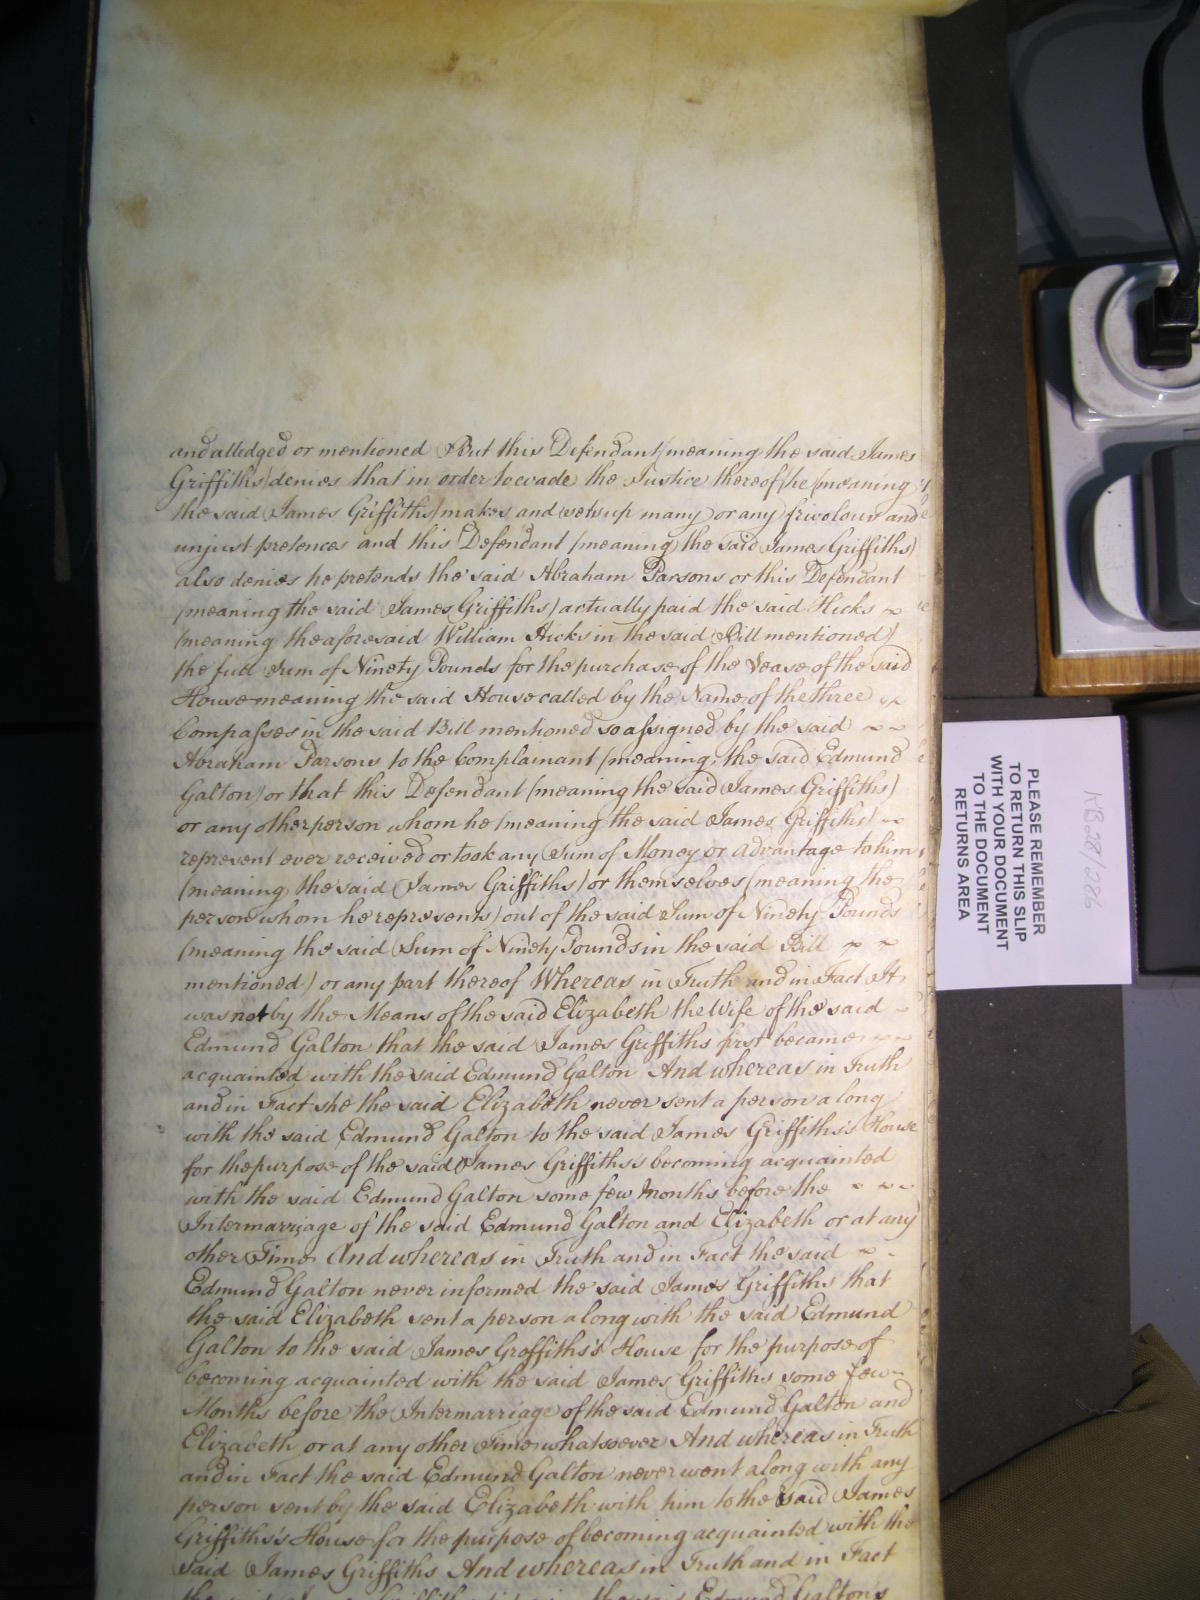 and alledged or mentioned But this Defendant (meaning the said James
Griffiths) denies that in order to evade the Justice thereof he (meaning
the said James Griffiths) makes and sets up many or any frivolous and
unjust pretences and this Defendant (meaning the said James Griffiths)
also denies he pretends the said Abraham Parsons or this Defendant
(meaning the said James Griffiths) actually paid the said Hicks
(meaning the aforesaid William Hicks in the said Bill mentioned)
the full Sum of Ninety Pounds for the purchase of the Lease of the said
House meaning the said House called by the Name of the three
Compasses in the said Bill mentioned so assigned by the said
Abraham Parsons to the Complainant (meaning the said Edmund
Galton) or that this Defendant (meaning the said James Griffiths)
or any other person whom he (meaning the said James Griffiths)
represent ever received or took any Sum of Money or advantage to him
(meaning the said James Griffiths) or themselves (meaning the
person whom he represents) out of the said Sum of Ninety Pounds
(meaning the said Sum of Ninety Pounds in the said Bill
mentioned) or any part thereof Whereas in Truth and in Fact It
was not by the Means of the said Elizabeth the Wife of the said
Edmund Galton that the said James Griffiths first became
acquainted with the said Edmund Galton And whereas in Truth
and in Fact she the said Elizabeth never sent a person along
with the said Edmund Galton to the said James Griffiths's House
for the purpose of the said James Griffiths's becoming acquainted
with the said Edmund Galton some few Months before the
Intermarriage of the said Edmund Galton and Elizabeth or at any
other Time And whereas in Truth and in Fact the said
Edmund Galton never informed the said James Griffiths that
the said Elizabeth sent a person along with the said Edmund
Galton to the said James Groffiths's House for the purpose of
becoming acquainted with the said James Griffiths some few
Months before the Intermarriage of the said Edmund Galton and
Elizabeth or at any other Time whatsoever And whereas in Truth
and in Fact the said Edmund Galton never went along with any
person sent by the said Elizabeth with him to the said James
Griffiths's House for the purpose of becoming acquainted with the
said James Griffiths And whereas in Truth and in Fact
the said Edmund Galton's
PLEASE REMEMBER
TO RETURN THIS SLIP
WITH YOUR DOCUMENT
TO THE DOCUMENT
RETURNS AREA
KB 28/286